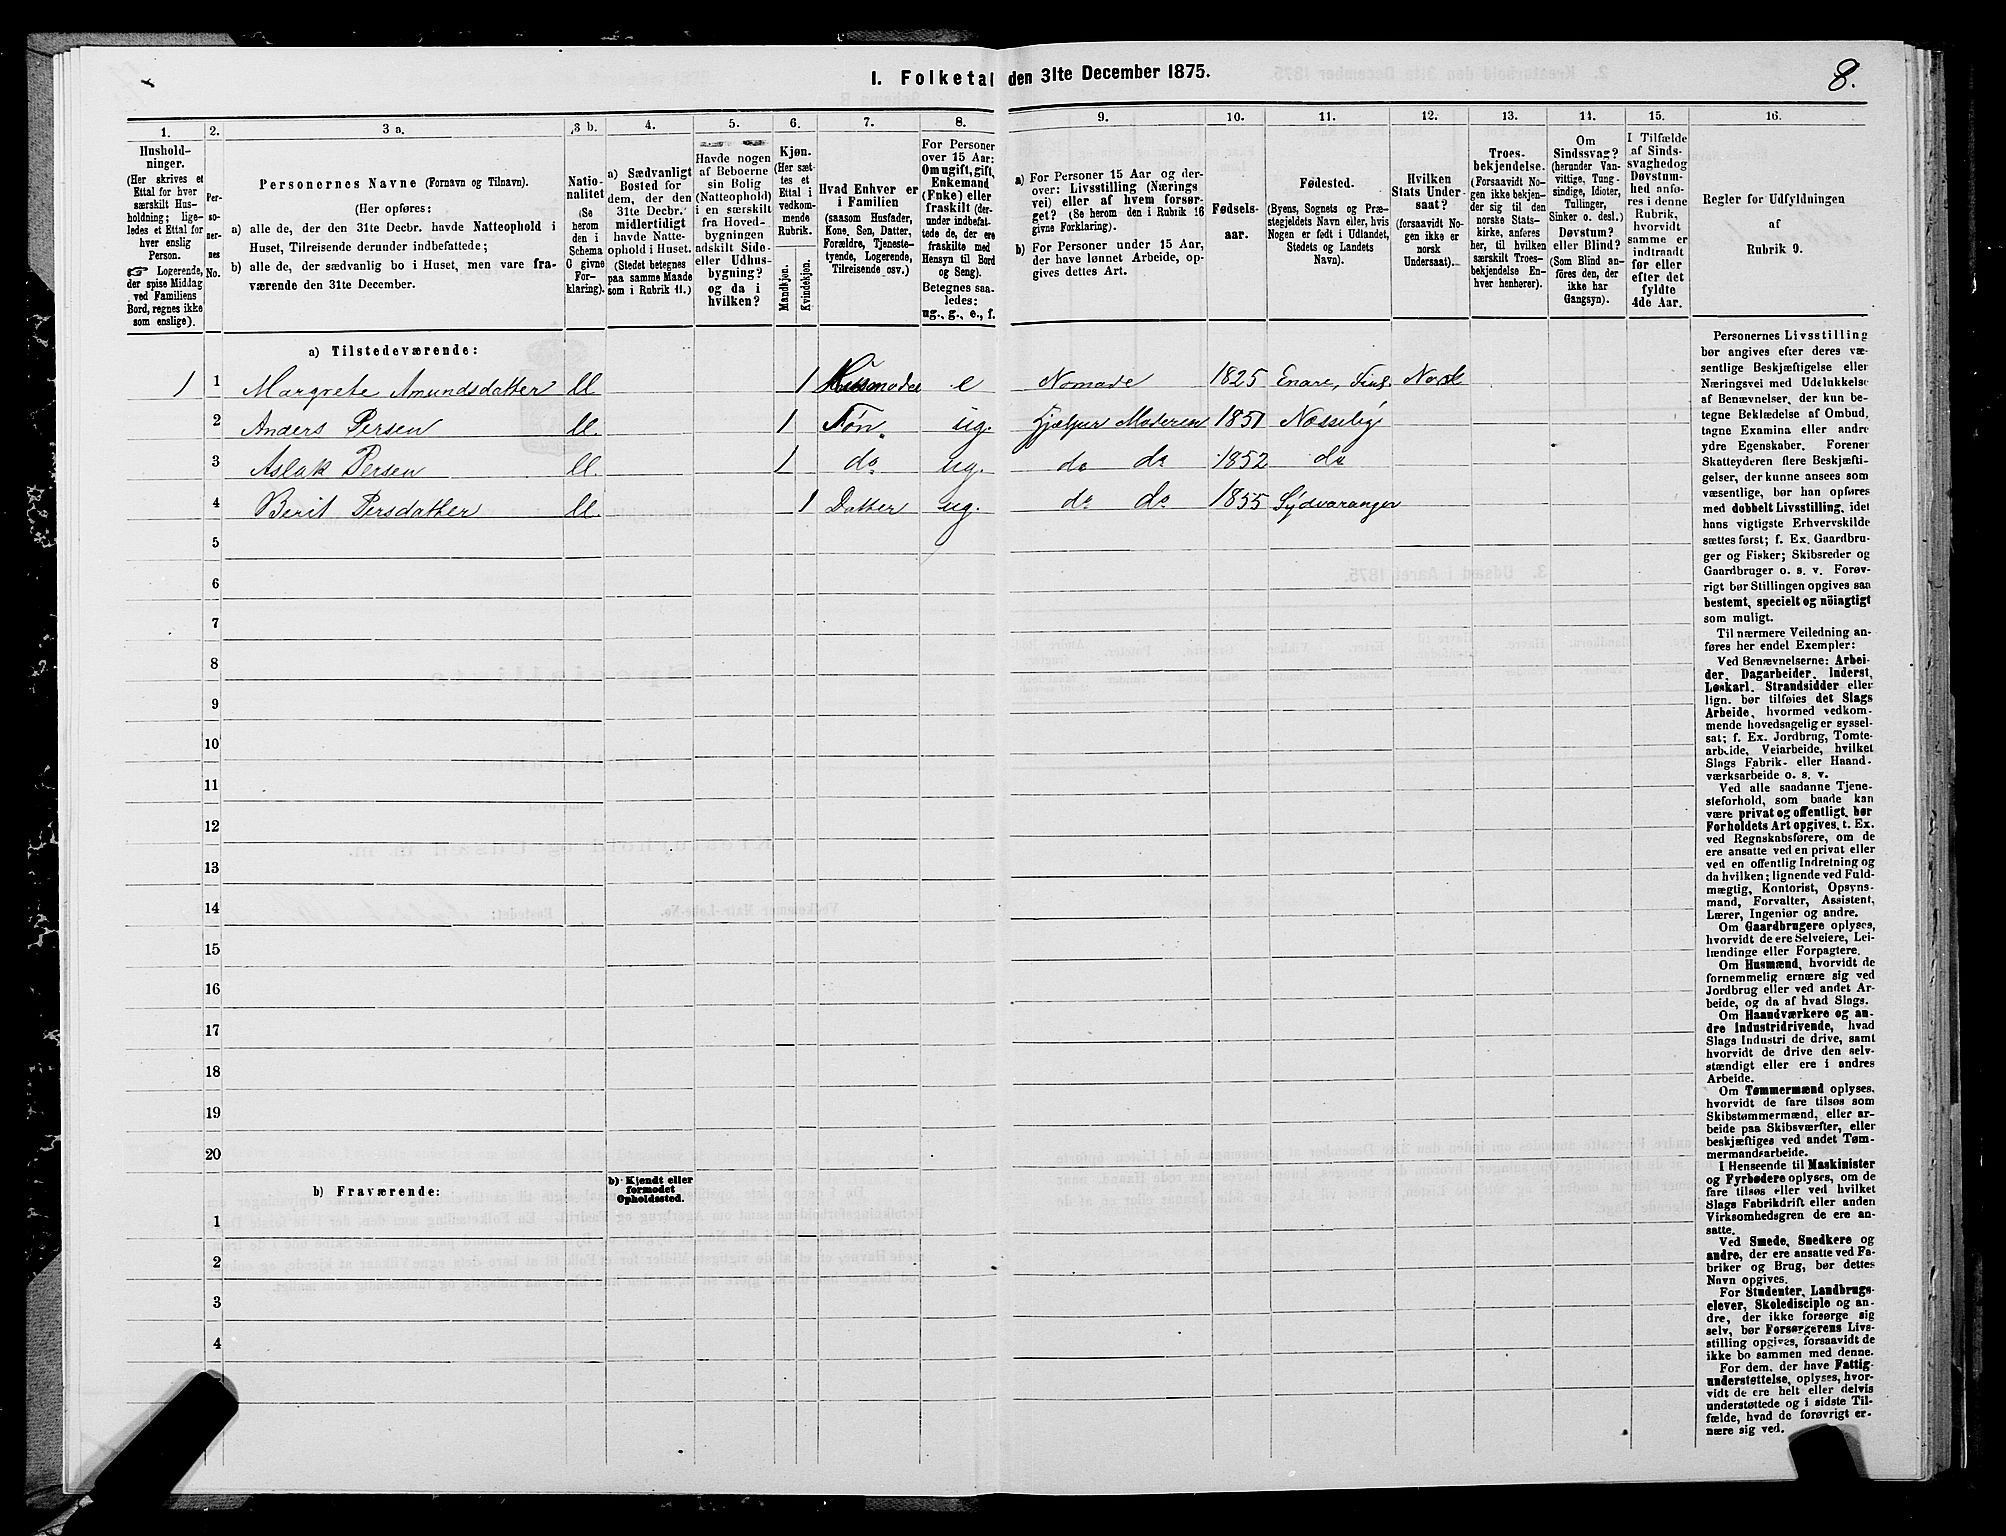 I. Folketal den 31te December 1875.
8.
1.
Husholdninger.
(Her skrives et
Ettal for hver
særskilt Husholdning;
ligeledes et Ettal for
hver enslig
Person.
☞ Logerende,
der spise Middag
ved Familiens
Bord, regnes ikke
som enslige).
2.
Personernes
No.
3 a.
Personernes Navne (Fornavn og Tilnavn).
(Her opføres:
a) alle de, der den 31te Decbr. havde Natteophold i
Huset, Tilreisende derunder indbefattede;
b) alle de, der sædvanlig bo i Huset, men vare fraværende
den 31te December.
3 b.
Nationalitet
(Se
herom
den i
Schema
G givne
Forklaring).
4.
a) Sædvanligt
Bosted for
dem, der den
31te Decbr.
midlertidigt
havde Natteophold
i Huset.
(Stedet betegnes
paa samme Maade
som i Rubrik 11.)
5.
Havde nogen
af Beboerne
sin Bolig
(Natteophold)
i en særskilt
fra Hovedbygningen
adskilt Side-
eller Udhusbygning?
og da i
hvilken?
6.
Kjøn.
(Her sættes
et
Ettal i
vedkommende
Rubrik.
Mandkjøn.
Kvindekjøn.
7.
Hvad Enhver er
i Familien
(saasom Husfader,
Kone, Søn, Datter,
Forældre, Tjenestetyende,
Logerende,
Tilreisende osv.)
8.
For Personer
over 15 Aar:
Om ugift, gift,
Enkemand
(Enke) eller
fraskilt (derunder
indbefattede
de, der ere
fraskilte med
Hensyn til Bord
og Seng).
Betegnes saaledes:
ug., g., e., f.
9.
a) For Personer 15 Aar og derover:
Livsstilling (Næringsvei)
eller af hvem forsørget?
(Se herom den i Rubrik 16
givne Forklaring).
b) For Personer under 15 Aar,
der have lønnet Arbeide, opgives
dettes Art.
10.
Fødselsaar.
11.
Fødested.
(Byens, Sognets og Præstegjeldets
Navn eller, hvis
Nogen er født i Udlandet,
Stedets og Landets
Navn).
12.
Hvilken
Stats Undersaat?
(forsaavidt Nogen
ikke er
norsk
Undersaat).
13.
Troesbekjendelse.
(Forsaavidt Nogen
ikke bekjender
sig til den
norske Statskirke,
anføres
her, til hvilken
særskilt Troesbekjendelse
Enhver
henhører).
14.
Om
Sindssvag?
(herunder Vanvittige,
Tungsindige,
Idioter,
Tullinger,
Sinker o. desl.)
Døvstum?
eller Blind?
(Som Blind anføres
den, der
ikke har
Gangsyn).
15.
I Tilfælde
af Sindssvaghed
og
Døvstumhed
anføres
i denne
Rubrik,
hvorvidt
samme er
indtraadt
før eller
efter det
fyldte
4de Aar.
16.
Regler for Udfyldningen
af
Rubrik 9.
a) Tilstedeværende:
1 1 Margrete Amundsdatter ll 1 Husmoder e Nomade 1825 Enare, Finl. Norsk
2 Anders Persen ll. 1 Søn ug. Hjælper Moderen 1851 Næsseby
3 Aslak Persen ll. 1 do ug. do do 1852 do
4 Berit Persdatter ll. 1 Datter ug. do do 1855 Sydvaranger
5
6
7
8
9
10
11
12
13
14
15
16
17
18
19
20
b) Fraværende:
b) Kjendt eller
formodet
Opholdssted.
1
2
3
4
Personernes Livsstilling
bør angives efter deres væsentlige
Beskjæftigelse eller
Næringsvei med Udelukkelse
af Benævnelser, der kun betegne
Beklædelse af Ombud,
tagne Examina eller andre
ydre Egenskaber. Forener
Skatteyderen flere Beskjæftigelser,
der kunne ansees som
væsentlige, bør han opføres
med dobbelt Livsstilling, idet
hans vigtigste Erhvervskilde
sættes først; f. Ex. Gaardbruger
og Fisker; Skibsreder og
Gaardbruger o. s. v. Forøvrigt
bør Stillingen opgives saa
bestemt, specielt og nöiagtigt
som muligt.
Til nærmere Veiledning anføres
her endel Exempler:
Ved Benævnelserne: Arbeider,
Dagarbeider, Inderst,
Løskarl, Strandsidder eller
lign. bør tilføies det Slags
Arbeide, hvormed vedkommende
hovedsagelig er sysselsat;
f. Ex. Jordbrug, Tomtearbeide,
Veiarbeide, hvilket
Slags Fabrik- eller Haandværksarbeide
o. s. v.
Ved alle saadanne Tjenesteforhold,
som baade kan
være privat og offentligt, bør
Forholdets Art opgives, t. Ex.
ved Regnskabsførere, om de
ere ansatte ved en privat eller
ved en offentlig Indretning og
da hvilken; lignende ved Fuldmægtig,
Kontorist, Opsynsmand,
Forvalter, Assistent,
Lærer, Ingeniør og andre.
Om Gaardbrugere oplyses,
hvorvidt de ere Selveiere, Leilændinge
eller Forpagtere.
Om Husmænd, hvorvidt de
fornemmelig ernære sig ved
Jordbrug eller ved andet Arbeide,
og da af hvad Slags.
Om Haandværkere og andre
Industridrivende, hvad
Slags Industri de drive, samt
hvorvidt de drive den selvstændigt
eller ere i andres
Arbeide.
Om Tømmermænd oplyses,
hvorvidt de fare tilsøs som
Skibstømmermænd, eller arbeide
paa Skibsværfter, eller
beskjæftiges ved andet Tømmermandsarbeide.
I Henseende til Maskinister
og Fyrbødere oplyses, om de
fare tilsøs eller ved hvilket
Slags Fabrikdrift eller anden
Virksomhedsgren de ere ansatte.
Ved Smede, Snedkere og
andre, der ere ansatte ved Fabriker
og Brug, bør dettes
Navn opgives.
For Studenter, Landbrugselever,
Skoledisciple og andre,
der ikke forsørge sig
selv, bør Forsørgerens Livsstilling
opgives, forsaavidt de
ikke bo sammen med denne.
For dem, der have Fattigunderstøttelse,
oplyses, hvorvidt
de ere helt eller delvis
understøttede og i sidste Tilfælde,
hvad de forøvrigt ernære
sig ved.